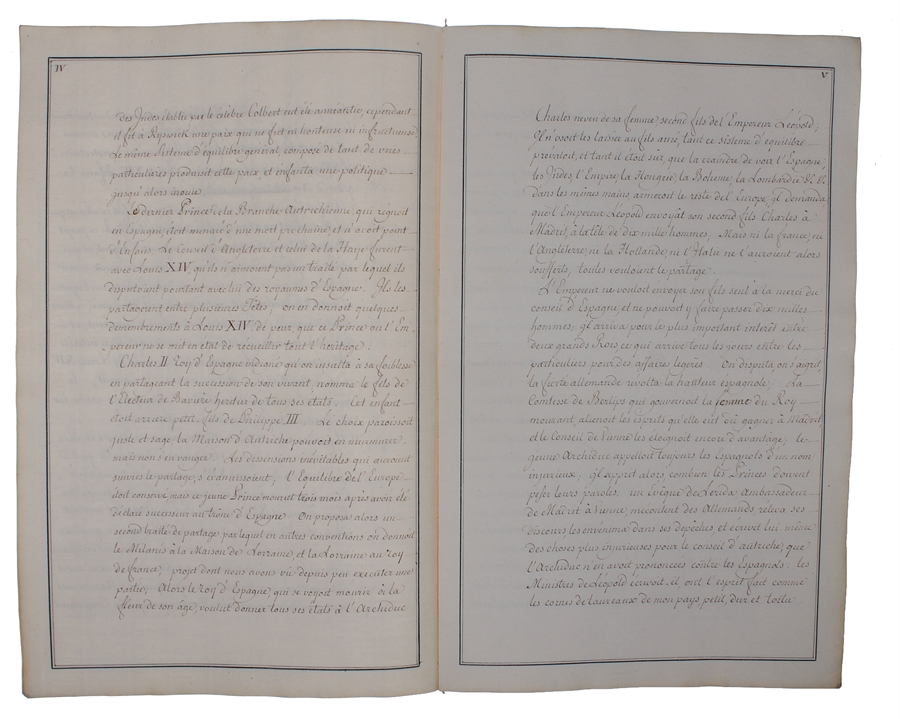 IV
des Indes établie par le célèbre Colbert eut été anéantie, cependant
il fit à Ryswick une paix qui ne fut ni honteuse ni infructueuse
Le même Sisteme d'équilibre general, composé de tant de vues
particulieres produisit cette paix et enfanta une politique
jusqu'alors inouie
Le dernier Prince de la Branche Autrichienne, qui regnoit
en Espagne, étoit menacé d'une mort prochaine, et n'avoit point
d'Enfans. Le Conseil d'Angleterre et celui de la Haye firent
avec Louis XIV, qu'ils n'aimoient pas un traité par lequel ils
disputoient pourtant avec lui des royaumes d'Espagne. Ils les
partageoient entre plusieurs Têtes, on en donnoit quelques
demembrements à Louis XIV de peur que ce Prince ou l'Em
pereur ne se mit en état de recueillir tout l'heritage.
Charles II Roy d'Espagne indigné qu'on insulta à sa foiblesse
en partageant la sucession de son vivant, nomma le fils de
l'Electeur de Baviere heritier de tous ses états. Cet enfant
étoit arriere petit fils de Philippe III. Le choix paroissoit
juste et sage, la Maison d'Autriche pouvoit en murmurer
mais non s'en vanger. Les dissensions inévitables qui auroient
suivis le partage, s'évanouissoient, l'Equilibre de l'Europe
étoit conservé, mais ce jeune Prince mourut trois mois après avoir été
déclaré sucesseur au trône d'Espagne. On proposa alors un
second traité de partage par lequel en autres conventions on donnoit
le Milanés à la Maison de Lorraine, et la Lorraine au Roy
de france, projet dont nous avons vû depuis peu executer une
partie, Alors le roy d'Espagne, qui se voyoit mourir à la
fleur de son âge, voulut donner tous ses états à l'Archiduc
V
Charles neveu de sa femme, second fils de l'Empereur Léopold;
Il n'osoit les laisser au fils ainé, tant ce sistème d'équilibre
prévaloit, et tant il étoit sûr, que la crainte de voir l'Espagne,
les Indes, l'Empire, la Hongrie, la Boheme, la Lombardie &c &c
dans les mêmes mains armeroit le reste de l'Europe, il demanda
que l'Empereur Léopold envoyât son second fils Charles à
Madrit, à la tête de dix mille hommes. Mais ni la france, ni
l'Angleterre, ni la Hollande, ni l'Italie ne l'auroient alors
soufferts, toutes vouloient le partage.
L'Empereur ne vouloit envoyer son fils seul à la merci du
conseil d'Espagne, et ne pouvoit y faire passer dix milles
hommes; il arriva pour le plus important interêt entre
deux grands Rois ce qui arrive tous les jours entre les
particuliers pour des affaires legères. On disputa on s'aigrit
la fierté allemande revolta la hauteur espagnole; La
Comtesse de Berlips qui gouvernoit la femme du Roy
mourant, alienoit les esprits qu'elle eût dû gagner à Madrit
et le Conseil de Vienne les éloignoit encore d'avantage; le
jeune Archiduc appelloit toujours les Espagnols d'un nom
injurieux; il apprit alors, combien les Princes doivent
peser leurs paroles. un Evêque de Lerida Ambassadeur
de Madrit à Vienne, mécontent des Allemands releva ses
discours les envenima dans ses depêches, et ecrivit lui même
des choses plus injurieuses pour le conseil d'autriche, que
l'Archiduc n'en avoit prononcées contre les Espagnols: les
Ministres de Léopold écrivoit-il ont l'esprit fait comme
les cornes de taureaux de mon pays petit, dur et tortu